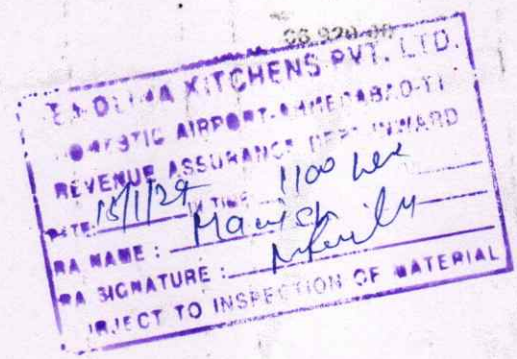 KITCHENS PVT. LTD.
AIRPORT-AHMEDABAD-T1
REVENUE ASSURANCE DEPT INWARD
DATE: 15/1/24 IN TIME 1100
RA NAME: Manish
RA SIGNATURE:
SUBJECT TO INSPECTION OF MATERIAL